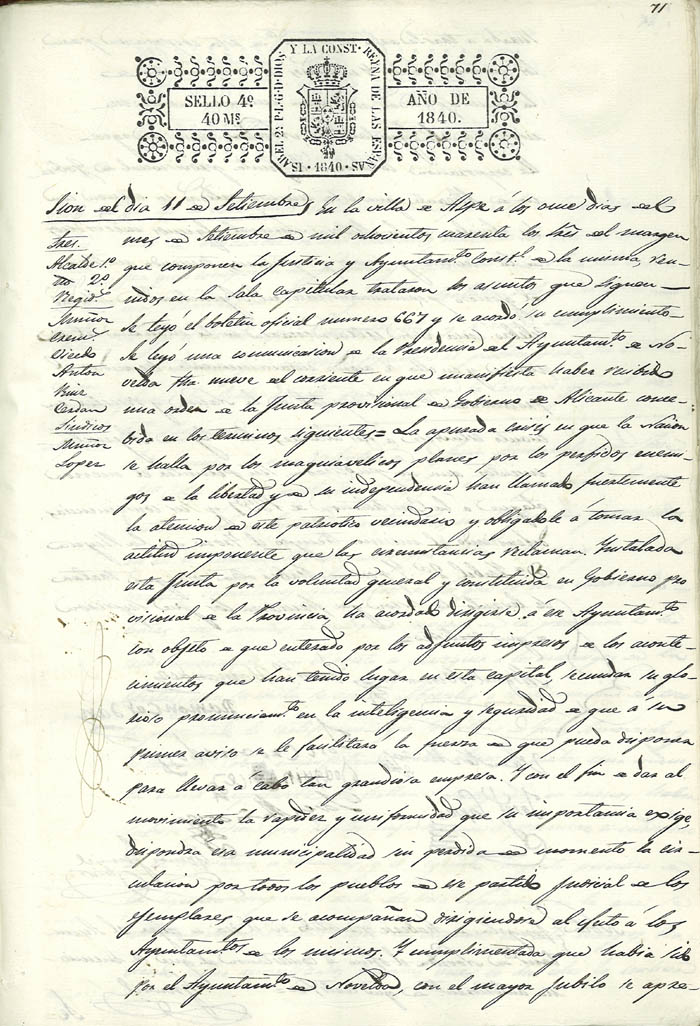 71
ISABEL 2ª P.L.G.D. DIOS Y LA CONST. REYNA DE LAS ESPAÑAS
·1840·
SELLO 4º
40 Ms
AÑO DE
1840.
Sion del dia 11 de Setiembre
En la villa de Aspe á los once dias del
mes de Setiembre de mil ochocientos cuarenta los Sres del margen
que componen la Justicia y Ayuntamto Constl de la misma, reu-
nidos en la Sala capitular trataron los asuntos que siguen
Se leyó el boletin oficial numero 667 y se acordó su cumplimiento
Se leyó una comunicacion de la Presidencia del Ayuntamto de No-
velda fha nueve del corriente en que manifiesta haber recibido
una orden de la Junta provisional de Gobierno de Alicante conce-
bida en los terminos siguientes= La apurada crisis en que la Nacion
se halla por los maquiavelicos planes por los perfidos enemi-
gos de la libertad y de su independencia han llamado fuertemente
la atencion de este patriotico vecindario y obligadole á tomar la
actitud imponente que las circunstancias reclaman. Instalada
esta Junta por la voluntad general y constituida en Gobierno pro
visional de la Provincia, ha acordado dirigirse á ese Ayuntamto
con objeto de que enterado por los adjuntos impresos de los aconte-
cimientos que han tenido lugar en esta capital, secundan su glo-
rioso pronunciamto en la inteligencia y seguridad de que á su
primer aviso se le facilitara la fuerza de que pueda disponer
para llevar á cabo tan grandiosa empresa. Y con el fin de dar al
movimiento la rapidez y uniformidad que su importancia exige,
dispondra esa municipalidad sin perdida de momento la cir-
culacion por todos los pueblos de ese partido Judicial de los
ejemplares que se acompañan dirigiendose al efuto á los
Ayuntamtos de los mismos. Y cumplimentada que habia sido
por el Ayuntamto de Novelda, con el mayor jubilo se apre-
Sres.
Alcalde 1º
2º
Regids
Muñoz
Cremˢ
Oviedo
Anton
Ruiz
Cerdan
Sindicos
Muñoz
Lopez